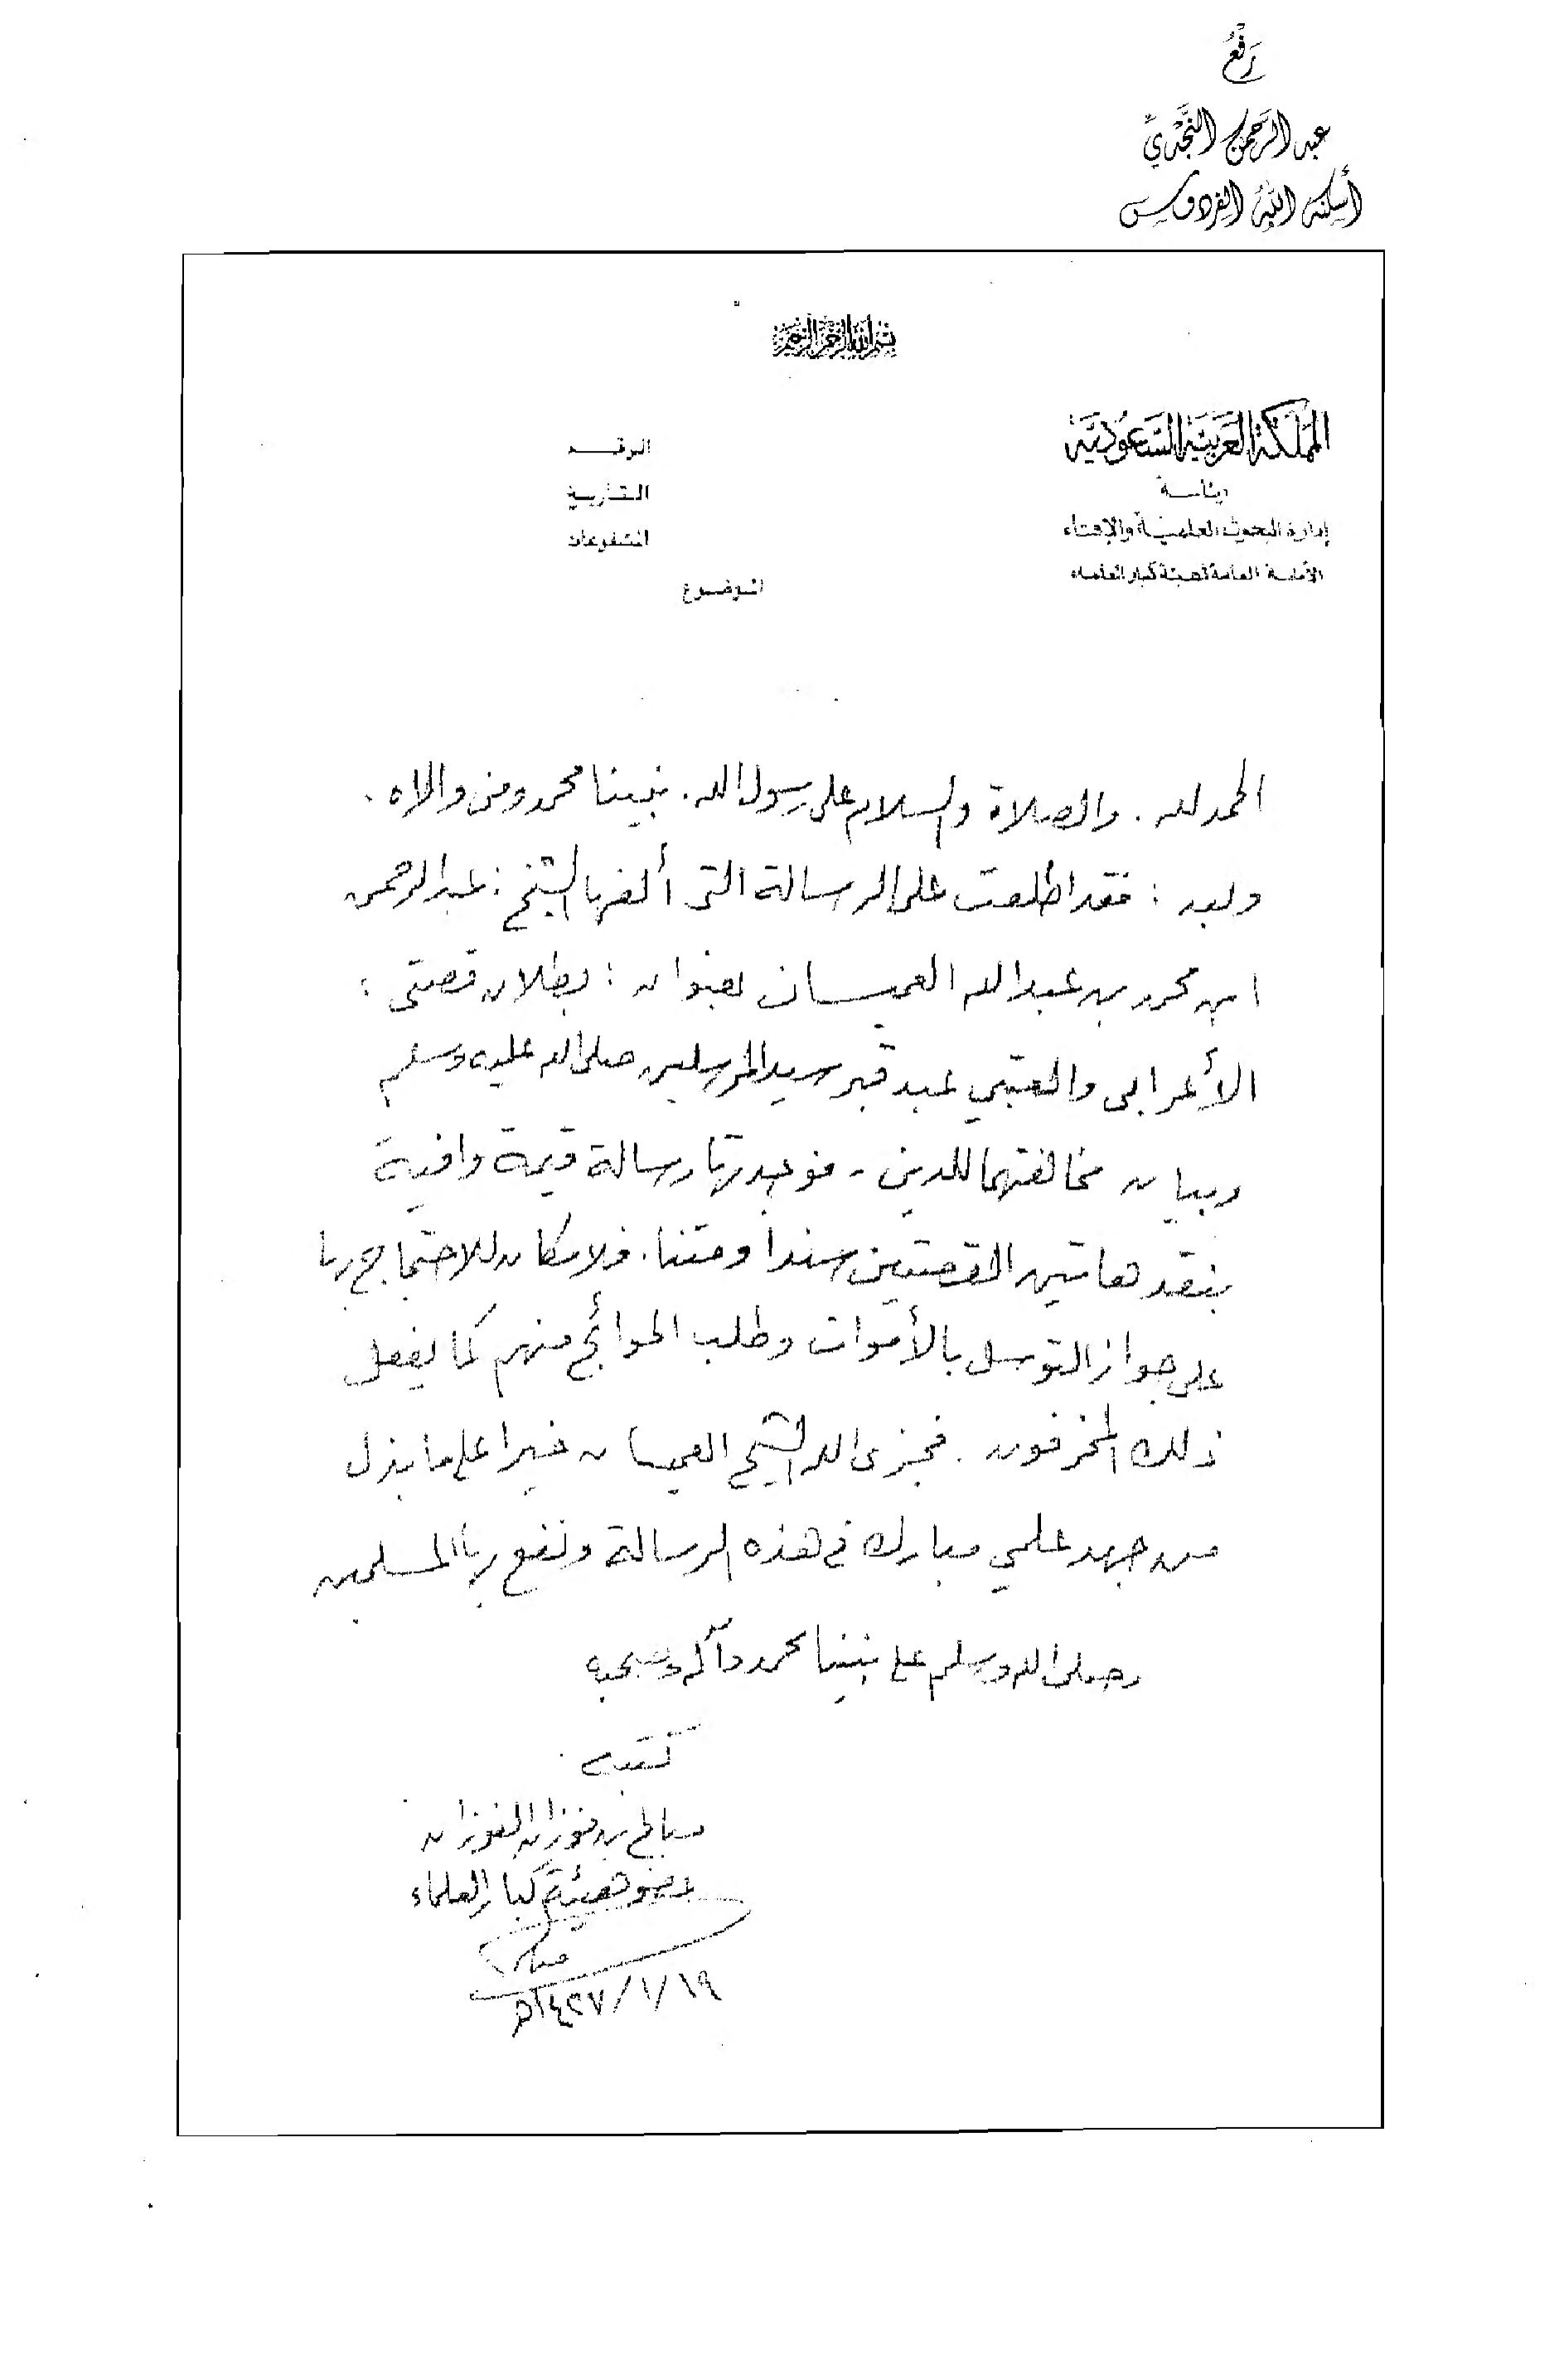 رَفْعُ
عبد الرَّحمن النَّجْدِيِّ
أسكنه اللهُ الفردوس
بسم الله الرحمن الرحيم
المملكة العربية السعودية
رئاسة
إدارة البحوث العلمية والإفتاء
الأمانة العامة لهيئة كبار العلماء
الرقم
التاريخ
المشفوعات
الموضوع
الحمد لله . والصلاة والسلام على رسول الله . نبينا محمد ومن والاه .
وبعد : فقد اطلعت على الرسالة التى ألفها الشيخ : عبدالرحمن
ابن محمد بن عبدالله العميسان بعنوان : بطلان قصتى :
الأعرابى والعتبي عند قبر سيد المرسلين صلى الله عليه وسلم
وبيان مخالفتهما للدين - فوجدتها رسالة قيمة وافية
بنقد هاتين القصتين سندا ومتنا . فلا مكان للاحتجاج بها
على جواز التوسل بالأموات وطلب الحوائج منهم كما يفعل
ذلك المخرفون . فجزى الله الشيخ العميسان خيرا على ما بذل
من جهد علمي مبارك في هذه الرسالة ونفع بها المسلمين
وصلى الله وسلم على نبينا محمد وآله وصحبه
كتبه
صالح بن فوزان الفوزان
عضو هيئة كبار العلماء
١٤٢٧/١/١٩هـ